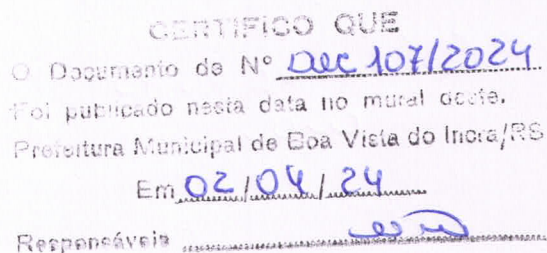 CERTIFICO QUE
O Documento de Nº Dec 107/2024
Foi publicado nesta data no mural deste.
Prefeitura Municipal de Boa Vista do Incra/RS
Em 02/04/24
Responsáveis